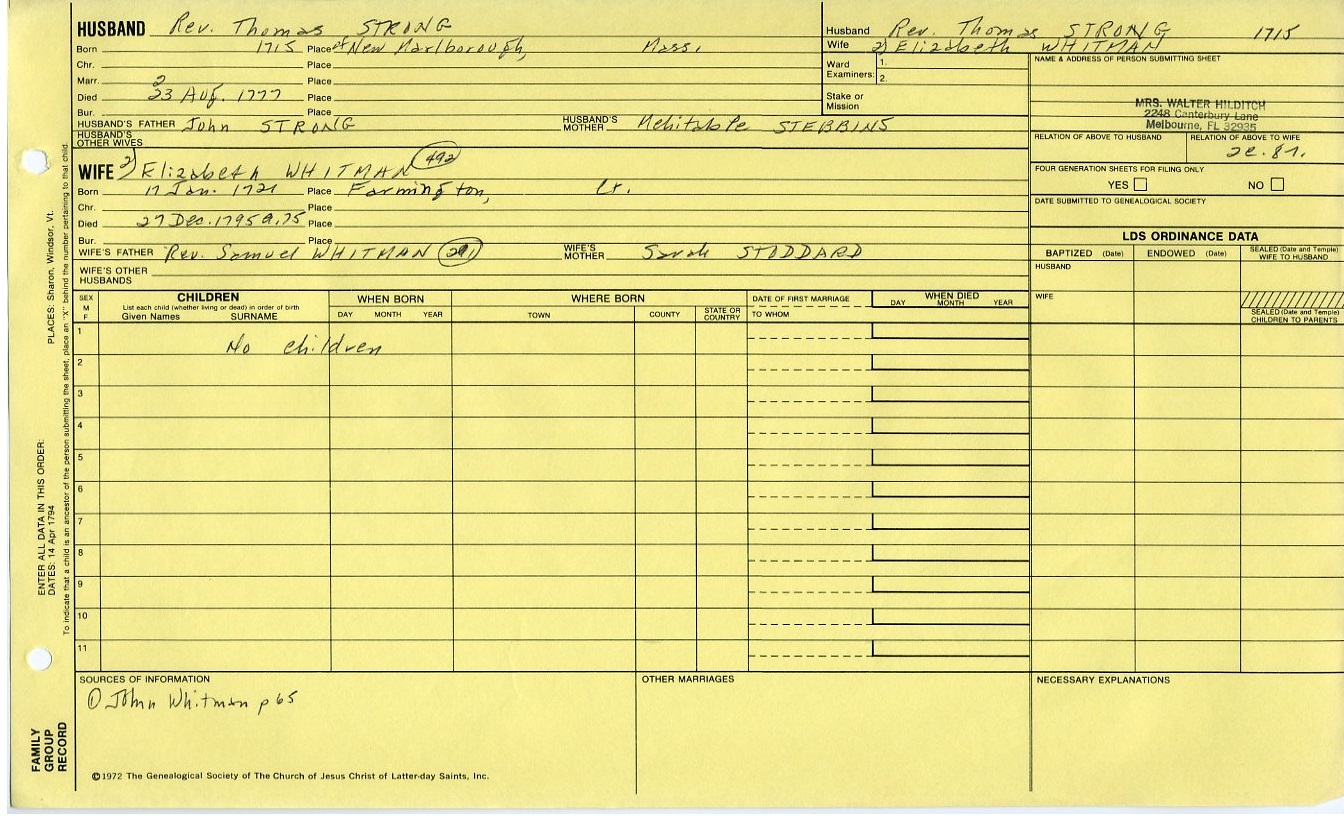 HUSBAND Rev. Thomas STRONG
Born 1715 Place of New Marlborough, Mass.
Chr. Place
Marr. 2 Place
Died 23 Aug. 1777 Place
Bur. Place
HUSBAND'S FATHER John STRONG HUSBAND'S MOTHER Mehitable STEBBINS
HUSBAND'S OTHER WIVES
Husband Rev. Thomas STRONG 1715
Wife 2) Elizabeth WHITMAN
Ward Examiners: 1.
2.
Stake or Mission
NAME & ADDRESS OF PERSON SUBMITTING SHEET
MRS. WALTER HILDITCH
2248 Canterbury Lane
Melbourne, FL 32935
RELATION OF ABOVE TO HUSBAND RELATION OF ABOVE TO WIFE
FOUR GENERATION SHEETS FOR FILING ONLY
YES NO
DATE SUBMITTED TO GENEALOGICAL SOCIETY
2) WIFE Elizabeth WHITMAN 492
Born 17 Jan. 1721 Place Farmington, Ct.
Chr. Place
Died 27 Dec. 1795 a. 75 Place
Bur. Place
WIFE'S FATHER Rev. Samuel WHITMAN 291 WIFE'S MOTHER Sarah STODDARD
WIFE'S OTHER HUSBANDS
LDS ORDINANCE DATA
BAPTIZED (Date) ENDOWED (Date) SEALED (Date and Temple) WIFE TO HUSBAND
HUSBAND
WIFE
SEALED (Date and Temple) CHILDREN TO PARENTS
SEX M F
CHILDREN
List each child (whether living or dead) in order of birth
Given Names SURNAME
WHEN BORN
DAY MONTH YEAR
WHERE BORN
TOWN COUNTY STATE OR COUNTRY
DATE OF FIRST MARRIAGE
TO WHOM
WHEN DIED
DAY MONTH YEAR
1 No children
2
3
4
5
6
7
8
9
10
11
SOURCES OF INFORMATION
① John Whitman p 65
OTHER MARRIAGES
NECESSARY EXPLANATIONS
©1972 The Genealogical Society of The Church of Jesus Christ of Latter-day Saints, Inc.
FAMILY GROUP RECORD
ENTER ALL DATA IN THIS ORDER:
DATES: 14 Apr 1794 PLACES: Sharon, Windsor, Vt.
To indicate that a child is an ancestor of the person submitting the sheet, place an "X" behind the number pertaining to that child.